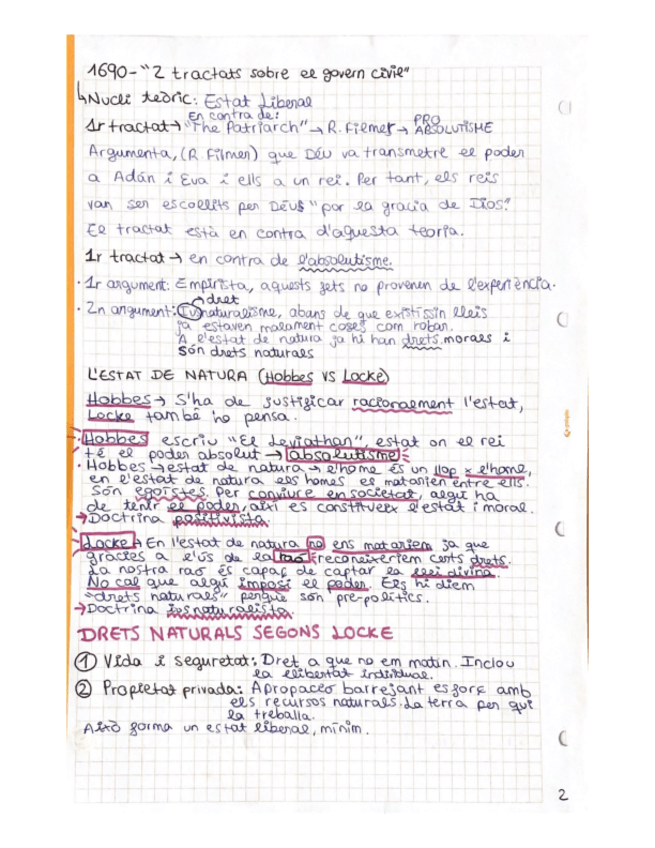 1690-"2 tractats sobre el govern civil"
↳Nucli teòric: Estat Liberal
En contra de:
1r tractat→ "The Patriarch" → R. Filmer → PRO ABSOLUTISME
Argumenta, (R Filmer) que Déu va transmetre el poder
a Adán i Eva i ells a un rei. Per tant, els reis
van ser escollits per Déus "por la gracia de Dios".
El tractat està en contra d'aquesta teoria.
1r tractat → en contra de l'absolutisme.
· 1r argument: Empirista, aquests fets no provenen de l'experiència.
→ dret
· 2n argument: Iusnaturalisme, abans de que existissin lleis
ja estaven malament coses com robar.
A l'estat de natura ja hi han drets morals i
són drets naturals
L'ESTAT DE NATURA (Hobbes VS Locke)
Hobbes → S'ha de justificar racionalment l'estat,
Locke també ho pensa.
· Hobbes escriu "El Leviathan", estat on el rei
té el poder absolut → absolutisme
· Hobbes → estat de natura → l'home és un llop x l'home,
en l'estat de natura els homes es matarien entre ells.
Són egoistes. Per conviure en societat, algú ha
de tenir el poder, així es constitueix l'estat i moral.
→ Doctrina positivista.
Locke → En l'estat de natura no ens mataríem ja que
gràcies a l'ús de la raó reconeixeríem certs drets.
La nostra raó és capaç de captar la llei divina.
No cal que algú imposi el poder. Els hi diem
"drets naturals" perquè són pre-polítics.
→ Doctrina iusnaturalista.
DRETS NATURALS SEGONS LOCKE
① Vida i seguretat: Dret a que no em matin. Inclou
la llibertat individual.
② Propietat privada: Apropació barrejant esforç amb
els recursos naturals. La terra per qui
la treballa.
Això forma un estat liberal, mínim.
2